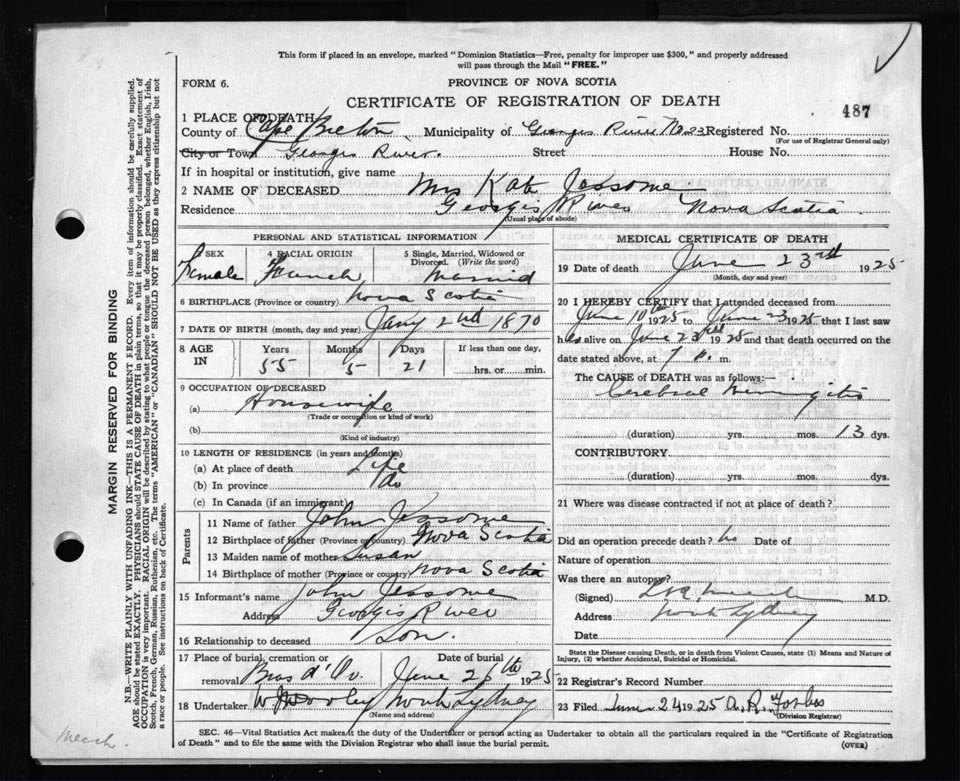 This form if placed in an envelope, marked "Dominion Statistics—Free, penalty for improper use $300," and properly addressed
will pass through the Mail "FREE."
FORM 6.
PROVINCE OF NOVA SCOTIA
CERTIFICATE OF REGISTRATION OF DEATH
487
1 PLACE OF DEATH
County of Cape Breton Municipality of Georges River No 23 Registered No.
(For use of Registrar General only)
City or Town Georges River. Street House No.
If in hospital or institution, give name
2 NAME OF DECEASED Mrs Kate Jessome
Residence Georges River Nova Scotia
(Usual place of abode)
PERSONAL AND STATISTICAL INFORMATION
3 SEX Female
4 RACIAL ORIGIN French
5 Single, Married, Widowed or Divorced. (Write the word) Married
6 BIRTHPLACE (Province or country) Nova Scotia
7 DATE OF BIRTH (month, day and year) Jany 2nd 1870
8 AGE IN Years 55 Months 5 Days 21 If less than one day, hrs. or min.
9 OCCUPATION OF DECEASED
(a) Housewife
(Trade or occupation or kind of work)
(b)
(Kind of industry)
10 LENGTH OF RESIDENCE (in years and months)
(a) At place of death Life
(b) In province do
(c) In Canada (if an immigrant)
Parents
11 Name of father John Jessome
12 Birthplace of father (Province or country) Nova Scotia
13 Maiden name of mother Susan
14 Birthplace of mother (Province or country) Nova Scotia
15 Informant's name John Jessome
Address Georges River
16 Relationship to deceased Son.
17 Place of burial, cremation or removal Bras d'Or. Date of burial June 26th 1925
18 Undertaker W J Dooley North Sydney
(Name and address)
MEDICAL CERTIFICATE OF DEATH
19 Date of death June 23rd 1925
(Month, day and year)
20 I HEREBY CERTIFY that I attended deceased from
June 10th 1925 to June 23 1925 that I last saw
her alive on June 23rd 1925 and that death occurred on the
date stated above, at 7 m.
The CAUSE of DEATH was as follows:—
Cerebral Meningitis
(duration) yrs. mos. 13 dys.
CONTRIBUTORY
(duration) yrs. mos. dys.
21 Where was disease contracted if not at place of death?
Did an operation precede death? no Date of
Nature of operation
Was there an autopsy?
(Signed) M.D.
Address North Sydney
Date
State the Disease causing Death, or in death from Violent Causes, state (1) Means and Nature of
Injury, (2) whether Accidental, Suicidal or Homicidal.
22 Registrar's Record Number
23 Filed June 24 1925 A. R. Forbes
(Division Registrar)
SEC. 46—Vital Statistics Act makes it the duty of the Undertaker or person acting as Undertaker to obtain all the particulars required in the "Certificate of Registration
of Death" and to file the same with the Division Registrar who shall issue the burial permit.
(OVER)
MARGIN RESERVED FOR BINDING
N.B.—WRITE PLAINLY WITH UNFADING INK—THIS IS A PERMANENT RECORD. Every item of information should be carefully supplied.
AGE should be stated EXACTLY. PHYSICIANS should STATE CAUSE OF DEATH in plain terms, so that it may be properly classified. Exact statement of
OCCUPATION is very important. RACIAL ORIGIN will be described by stating to what people or tongue the deceased person belonged, whether English, Irish,
Scotch, French, German, Russian, Ruthenian, etc. The terms "AMERICAN" or "CANADIAN" SHOULD NOT BE USED as they express citizenship but not
a race or people. See instructions on back of Certificate.